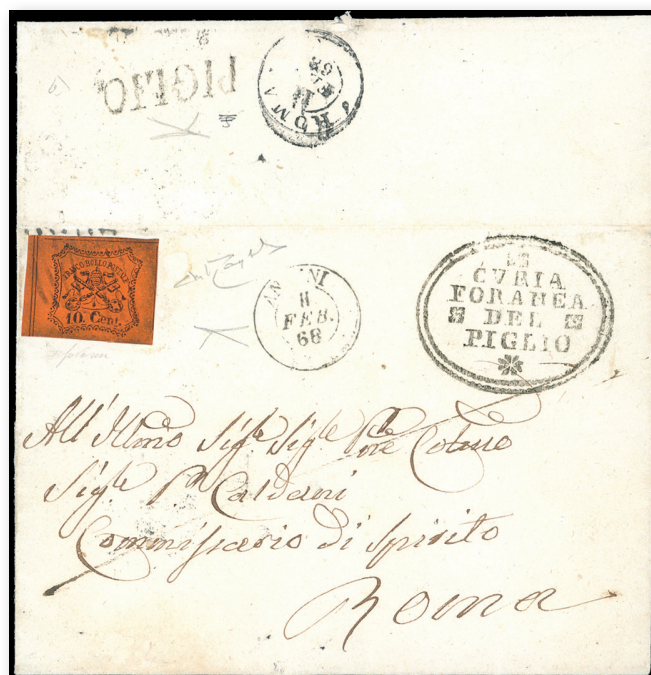 PIGLIO
ROMA
68
FRANCO BOLLO POSTALE
10. Cent.
ANAGNI
11
FEB.
68
CVRIA
FORANEA
DEL
PIGLIO
All' Illmo Sigle Sigle
Sigle Caldani
Commissario di Spirito
Roma